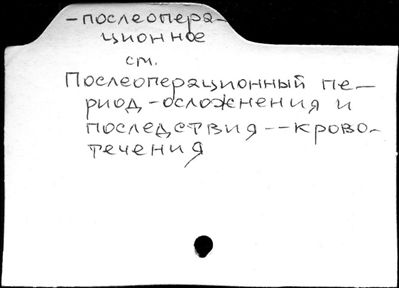 -послеопера-
ционное
см.
Послеоперационный пе-
риод-осложнения и
последствия--крово-
течения